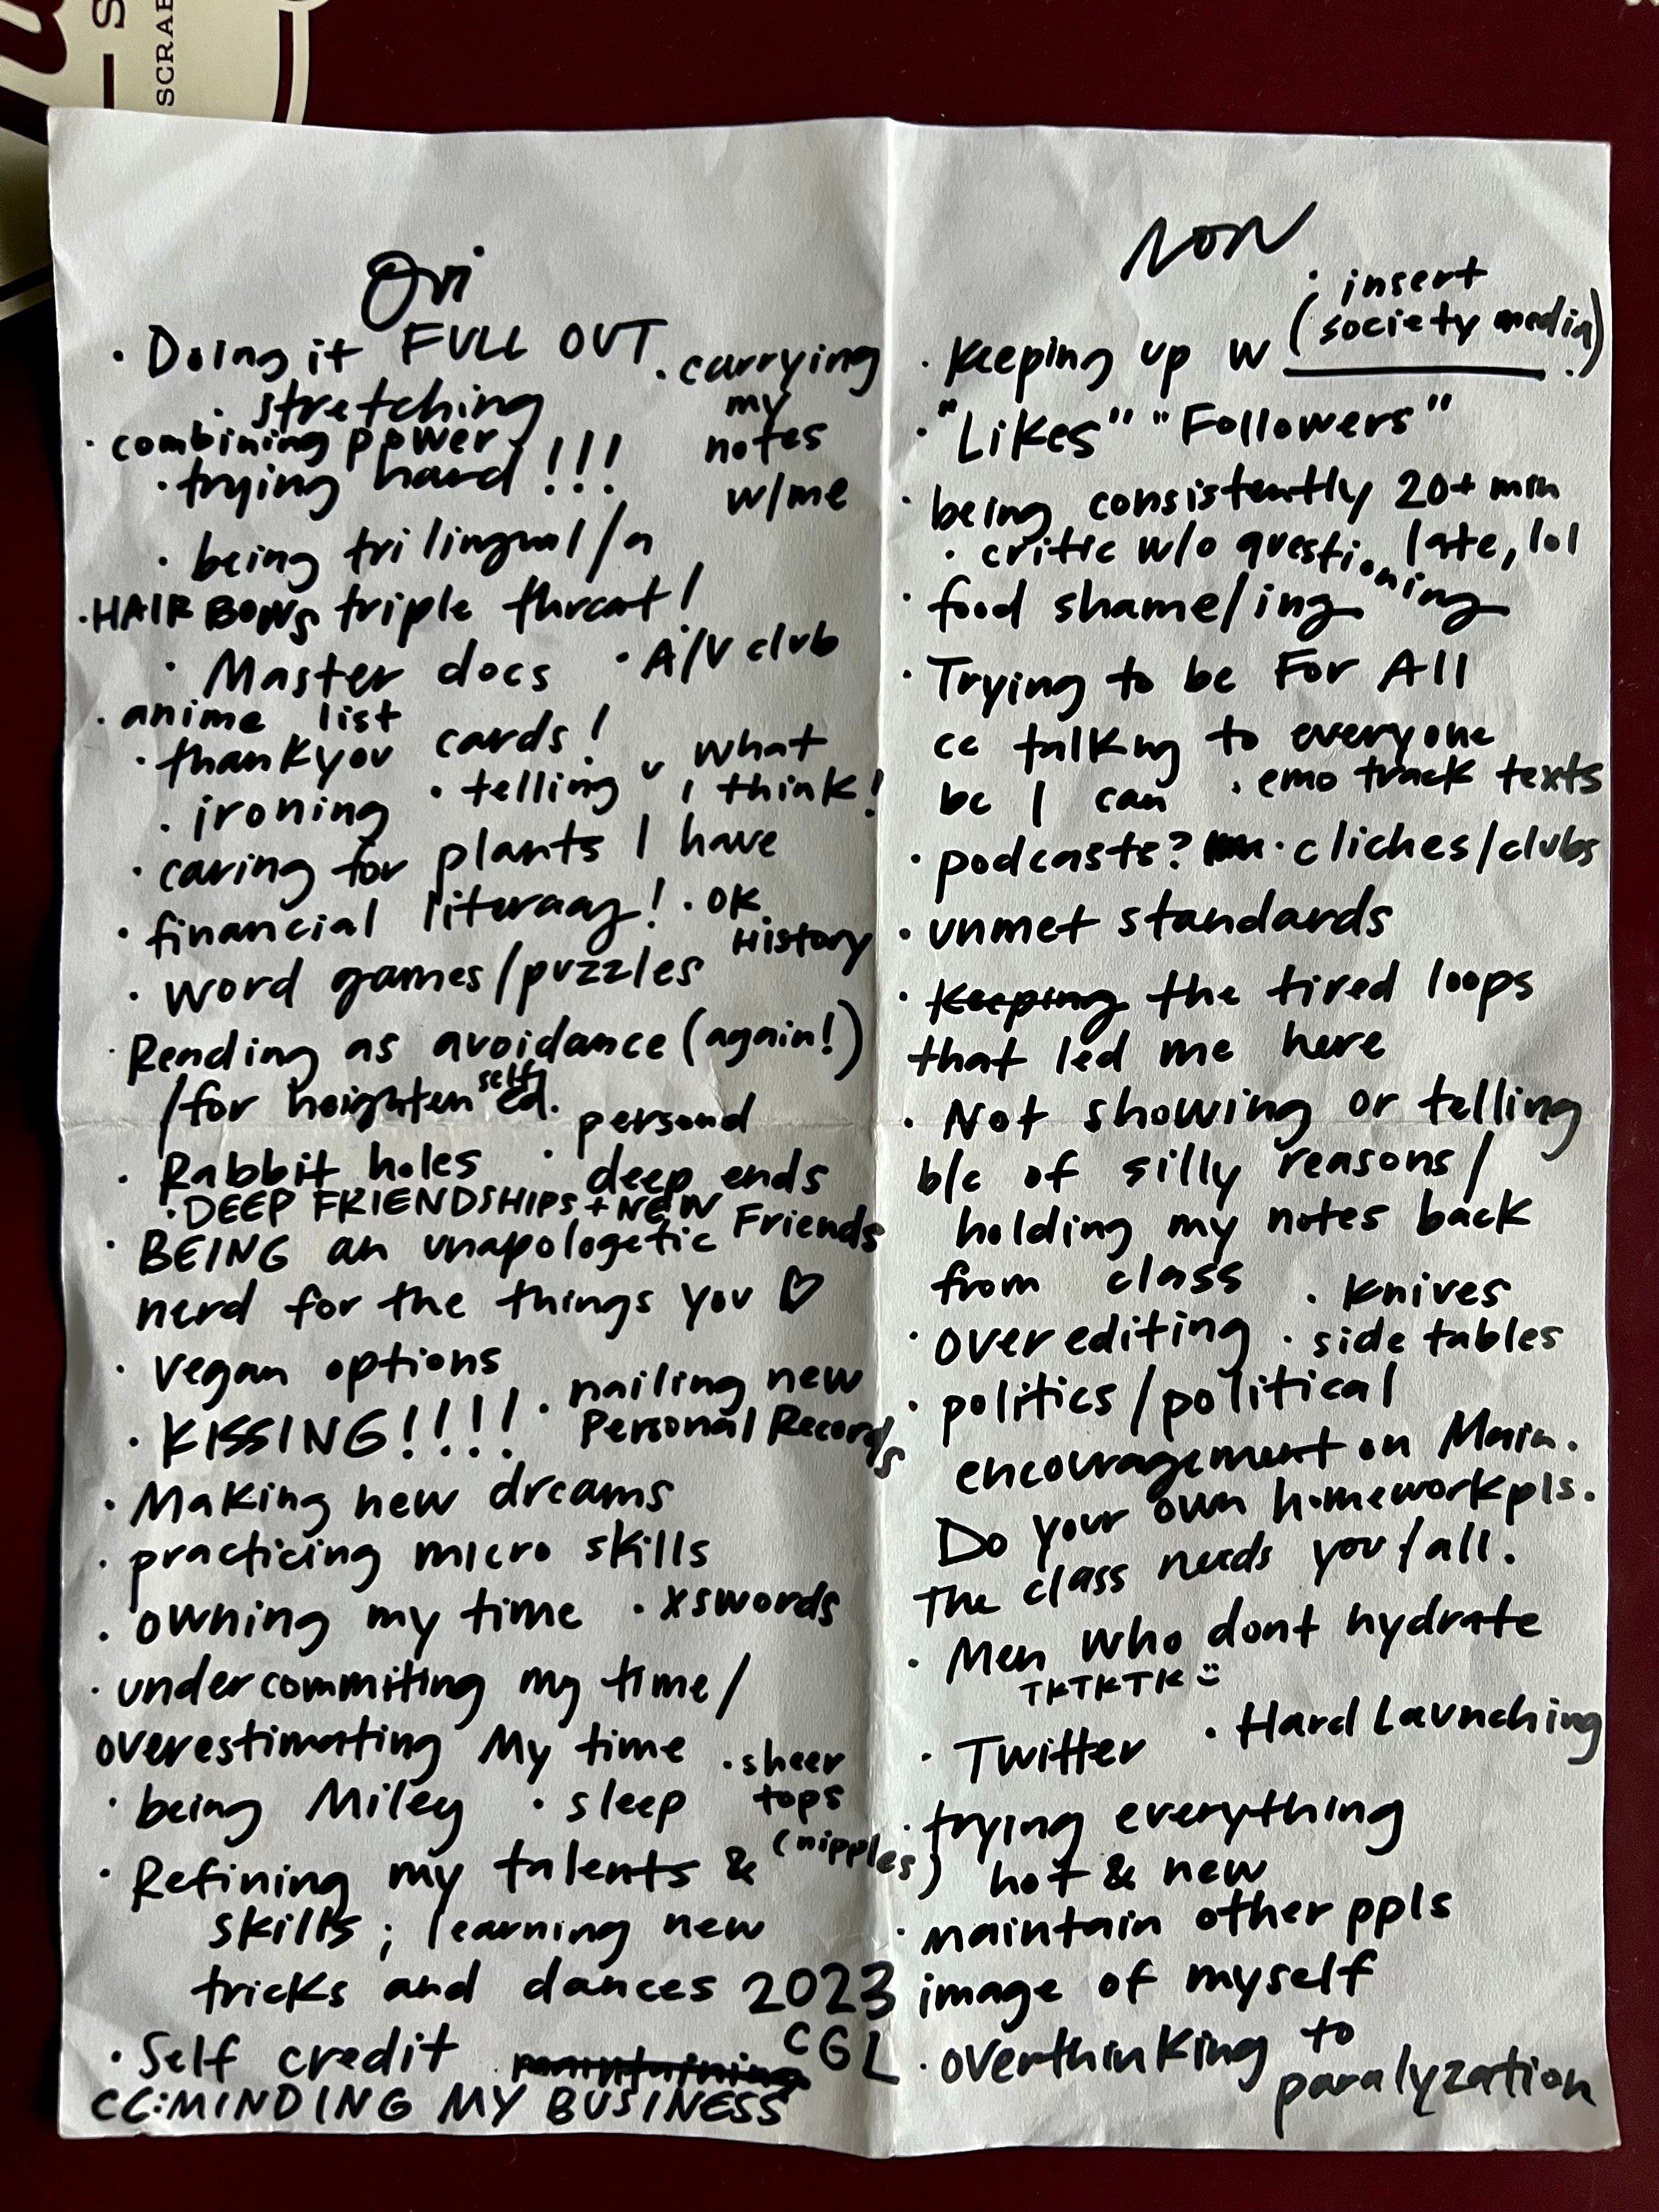 SCRAB
Oui
• Doing it FULL OUT
• carrying
my
notes
w/me
• stretching
• combining power
• trying hard!!!
• being trilingual/a
triple threat!
• HAIR BOWS
• Master docs
• A/V club
• anime list
• thankyou cards!
• telling u what
I think!
• ironing
• caring for plants I have
• financial literacy!
• OK
History
• word games/puzzles
• Reading as avoidance (again!)
/for heighten self ed.
• Rabbit holes
• personal
deep ends
• DEEP FRIENDSHIPS + NEW
Friends
• BEING an unapologetic
nerd for the things you ♡
• vegan options
• KISSING!!!!
• nailing new
Personal Records
• Making new dreams
• practicing micro skills
• owning my time
• xswords
• undercommiting my time/
overestimating My time
• sheer
tops
(nipples)
• being Miley
• sleep
• Refining my talents &
skills; learning new
tricks and dances 2023
CGL
• Self credit
CC:MINDING MY BUSINESS
NON
• Keeping up w ________.
(insert
society media)
• "Likes" "Followers"
• being consistently 20+ min
late, lol
• critic w/o questioning
• food shame/ing
• Trying to be For All
cc talking to everyone
bc I can
• emo track texts
• podcasts?
• cliches/clubs
• unmet standards
• Keeping the tired loops
that led me here
• Not showing or telling
b/c of silly reasons/
holding my notes back
from class
• knives
• over editing
• side tables
• politics/political
encouragement on Main.
Do your own homework pls.
The class needs you/all.
• Men who dont hydrate
TKTKTK :)
• Twitter
• Hard Launching
• trying everything
hot & new
• maintain other ppls
image of myself
• overthinking to
paralyzation